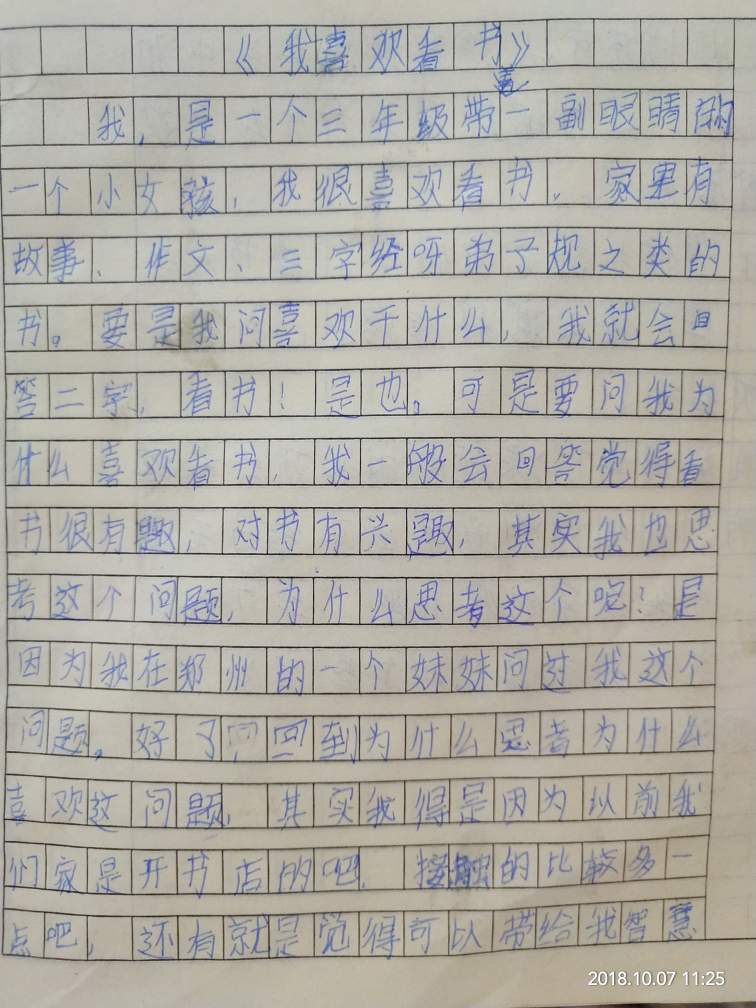 《我喜欢看书》
我，是一个三年级带一副眼睛的
一个小女孩，我很喜欢看书，家里有
故事、作文、三字经呀弟子规之类的
书。要是我问喜欢干什么，我就会回
答二字，看书！是也。可是要问我为
什么喜欢看书，我一般会回答觉得看
书很有趣，对书有兴趣，其实我也思
考这个问题，为什么思考这个呢！是
因为我在郑州的一个妹妹问过我这个
问题。好了回到为什么思考为什么
喜欢这问题，其实我得是因为以前我
们家是开书店的吧，接触的比较多一
点吧，还有就是觉得可以带给我智慧
2018.10.07 11:25